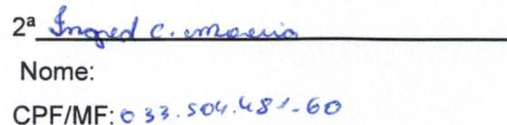 2ª Ingred C. Moeria
Nome:
CPF/MF: 033.504.481-60